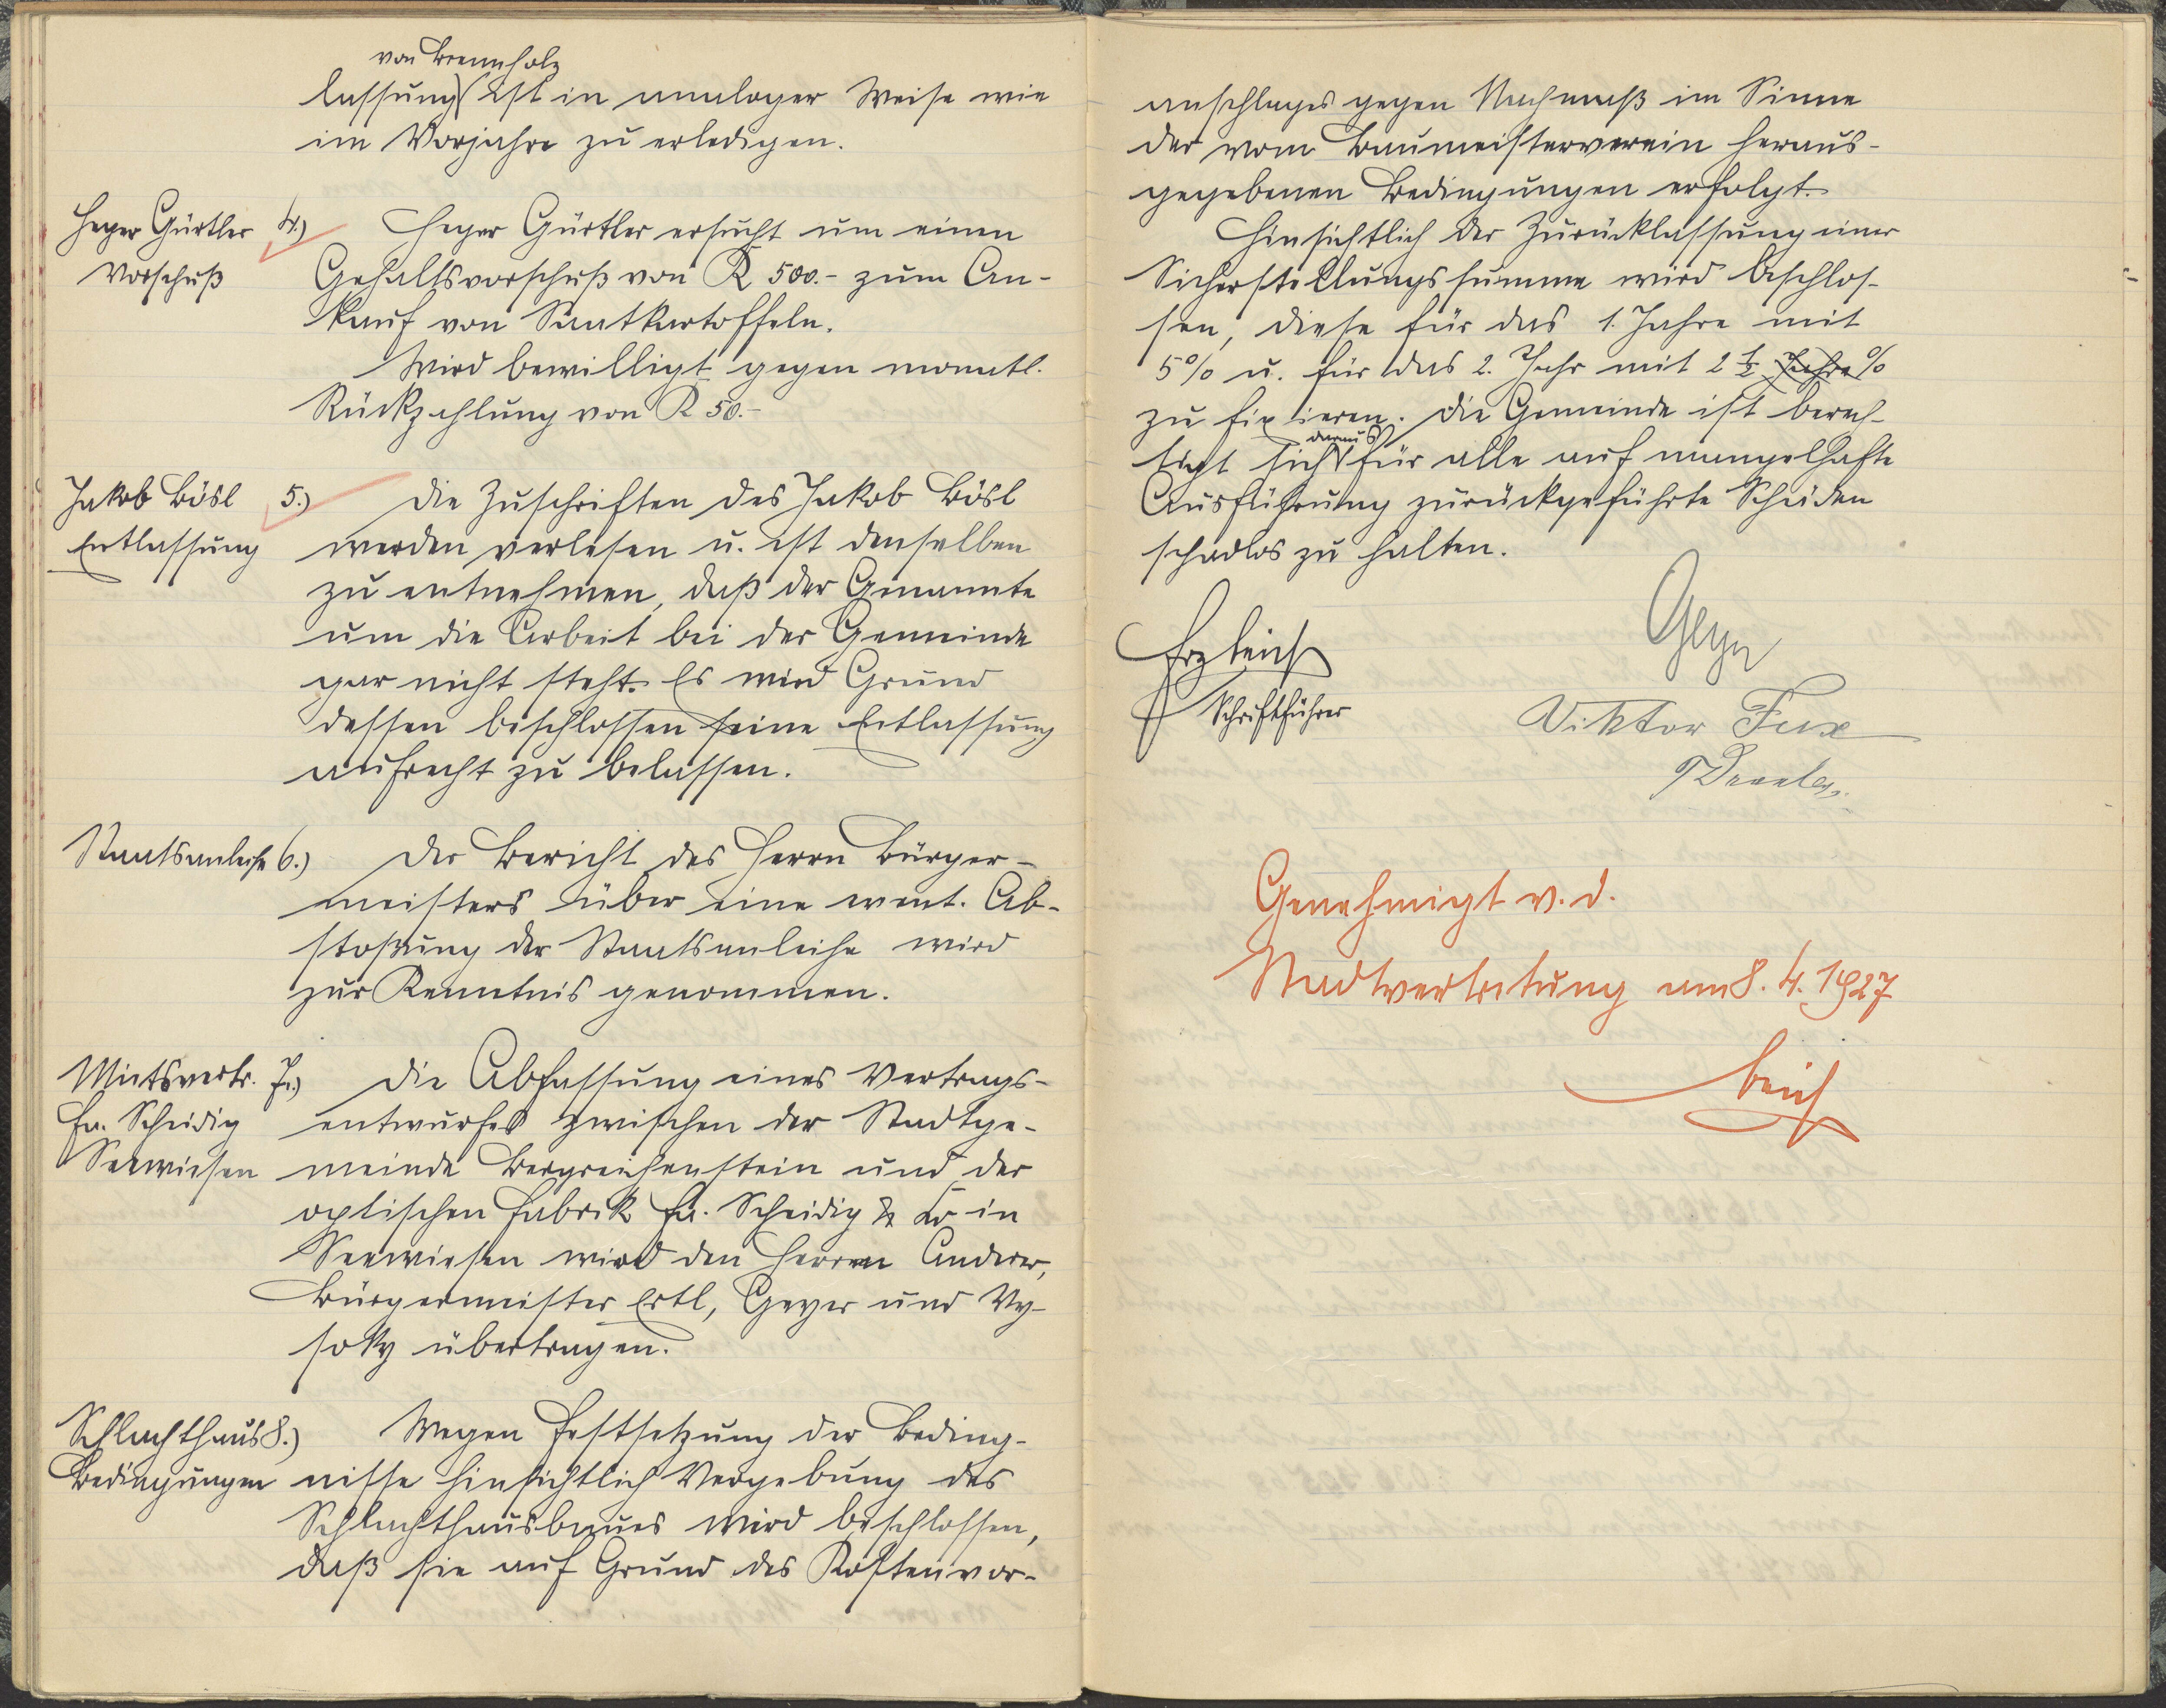 von Brennholz
lassung ist in analoger Weise wie
im Vorjahre zu erledigen.
Heger Gürtler 4.) Heger Gürtler ersucht um einen
Vorschuß Gehaltsvorschuß von K 500.- zum An-
kauf von Saatkartoffeln.
Wird bewilligt gegen monatl.
Rückzahlung von K 50.-
Jakob Bösl 5.) Die Zuschriften des Jakob Bösl
Entlassung werden verlesen u. ist denselben
zu entnehmen, daß der Genannte
um die Arbeit bei der Gemeinde
gar nicht steht. Es wird Grund
dessen beschlossen seine Entlassung
aufrecht zu belassen.
Staatsanleihe 6.) Der Bericht des Herrn Bürger-
meisters über eine event. Ab-
stoßung der Staatsanleihe wird
zur Kenntnis genommen.
Mietsvertr. 7.) Die Abfassung eines Vertrags-
Fa. Scheidig entwurfes zwischen der Stadtge-
Seewiesen meinde Bergreichenstein und der
optischen Fabrik Fa. Scheidig & Co in
Seewiesen wird den Herren Anderer,
Bürgermeister Ertl, Geyer und Wy-
soky übertragen.
Schlachthaus 8.) Wegen Festsetzung der Beding-
Bedingungen nisse hinsichtlich Vergebung des
Schlachthausbaues wird beschlossen,
daß sie auf Grund des Kostenvor-
anschlages gegen Nachmaß im Sinne
der vom Baumeisterverein heraus-
gegebenen Bedingungen erfolgt.
Hinsichtlich der Zurücklassung einer
Sicherstellungssumme wird beschlos-
sen, diese für das 1. Jahre mit
5% u. für das 2. Jahr mit 2 ½ Jahre %
zu fixieren. Die Gemeinde ist berech-
daraus
tigt sich für alle auf mangelhafte
Ausführung zurückgeführte Schäden
schadlos zu halten.
Geyer
Schriftführer
Viktor Fux
Genehmigt v. d.
Stadtvertretung am 8. 4. 1927